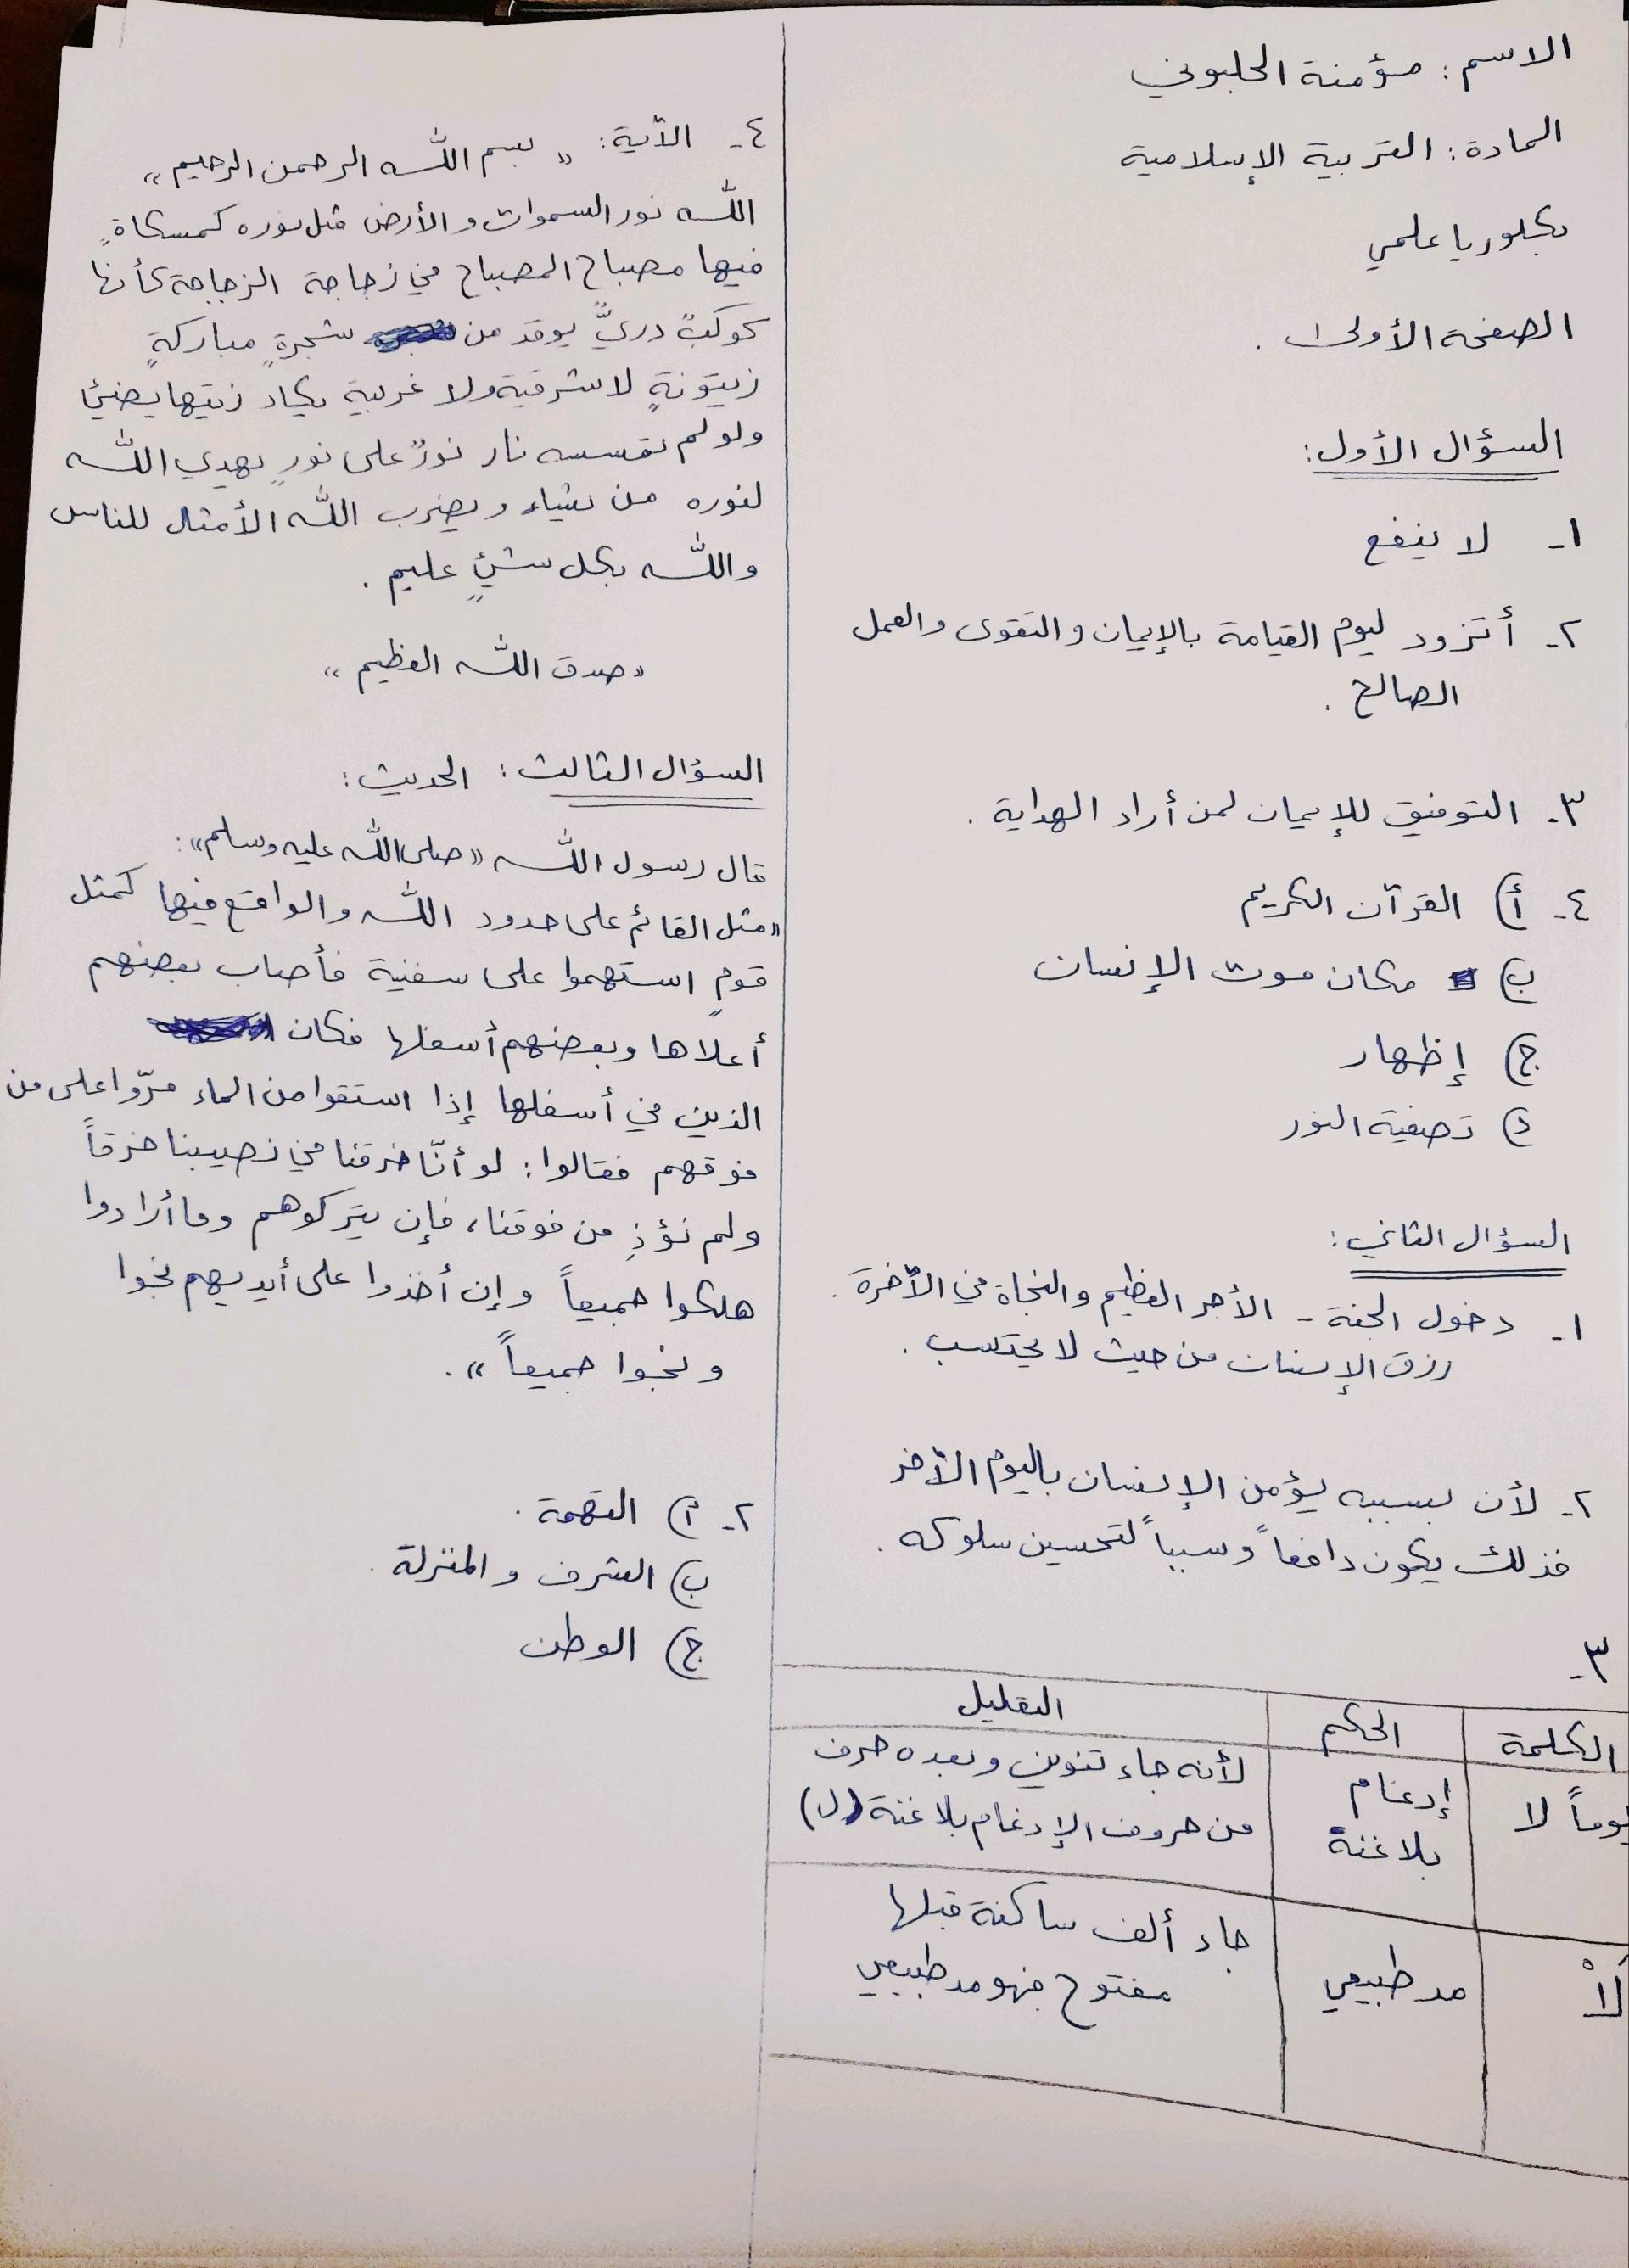 الاسم: مؤمنة الحلبوني
المادة: التربية الإسلامية
بكلوريا علمي
الصفحة الأولى.
السؤال الأول:
١- لا ينفع
٢- أتزود ليوم القيامة بالإيمان والتقوى والعمل
الصالح.
٣- التوفيق للإيمان لمن أراد الهداية.
٤- أ) القرآن الكريم
ب) مكان موت الإنسان
ج) إظهار
د) تصفية النور
السؤال الثاني:
١- دخول الجنة - الأجر العظيم والنجاة في الآخرة.
رزق الإنسان من حيث لا يحتسب.
٢- لأن بسببه يؤمن الإنسان باليوم الآخر
فذلك يكون دافعاً وسبباً لتحسين سلوكه.
٣-
الكلمة الحكم التعليل
يوماً لا إدغام بلا غنة لأنه جاء تنوين وبعده حرف
من حروف الإدغام بلا غنة (ل)
لَاْ مد طبيعي جاء ألف ساكنة قبلها
مفتوح فهو مد طبيعي
٤- الآية: "بسم الله الرحمن الرحيم"
الله نور السموات والأرض مثل نوره كمشكاةٍ
فيها مصباح المصباح في زجاجة الزجاجة كأنها
كوكبٌ دريٌّ يوقد من شجرةٍ مباركةٍ
زيتونةٍ لا شرقية ولا غربية يكاد زيتها يضيئ
ولو لم تمسسه نار نورٌ على نورٍ يهدي الله
لنوره من يشاء ويضرب الله الأمثال للناس
والله بكل شئٍ عليم.
"صدق الله العظيم"
السؤال الثالث: الحديث:
قال رسول الله "صلى الله عليه وسلم":
"مثل القائم على حدود الله والواقع فيها كمثل
قومٍ استهموا على سفينة فأصاب بعضهم
أعلاها وبعضهم أسفلها فكان
الذين في أسفلها إذا استقوا من الماء مرّوا على من
فوقهم فقالوا: لو أنّا خرقنا في نصيبنا خرقاً
ولم نؤذِ من فوقنا، فإن يتركوهم وما أرادوا
هلكوا جميعاً وإن أخذوا على أيديهم نجوا
ونجوا جميعاً".
٢- أ) التهمة.
ب) الشرف والمنزلة.
ج) الوطن